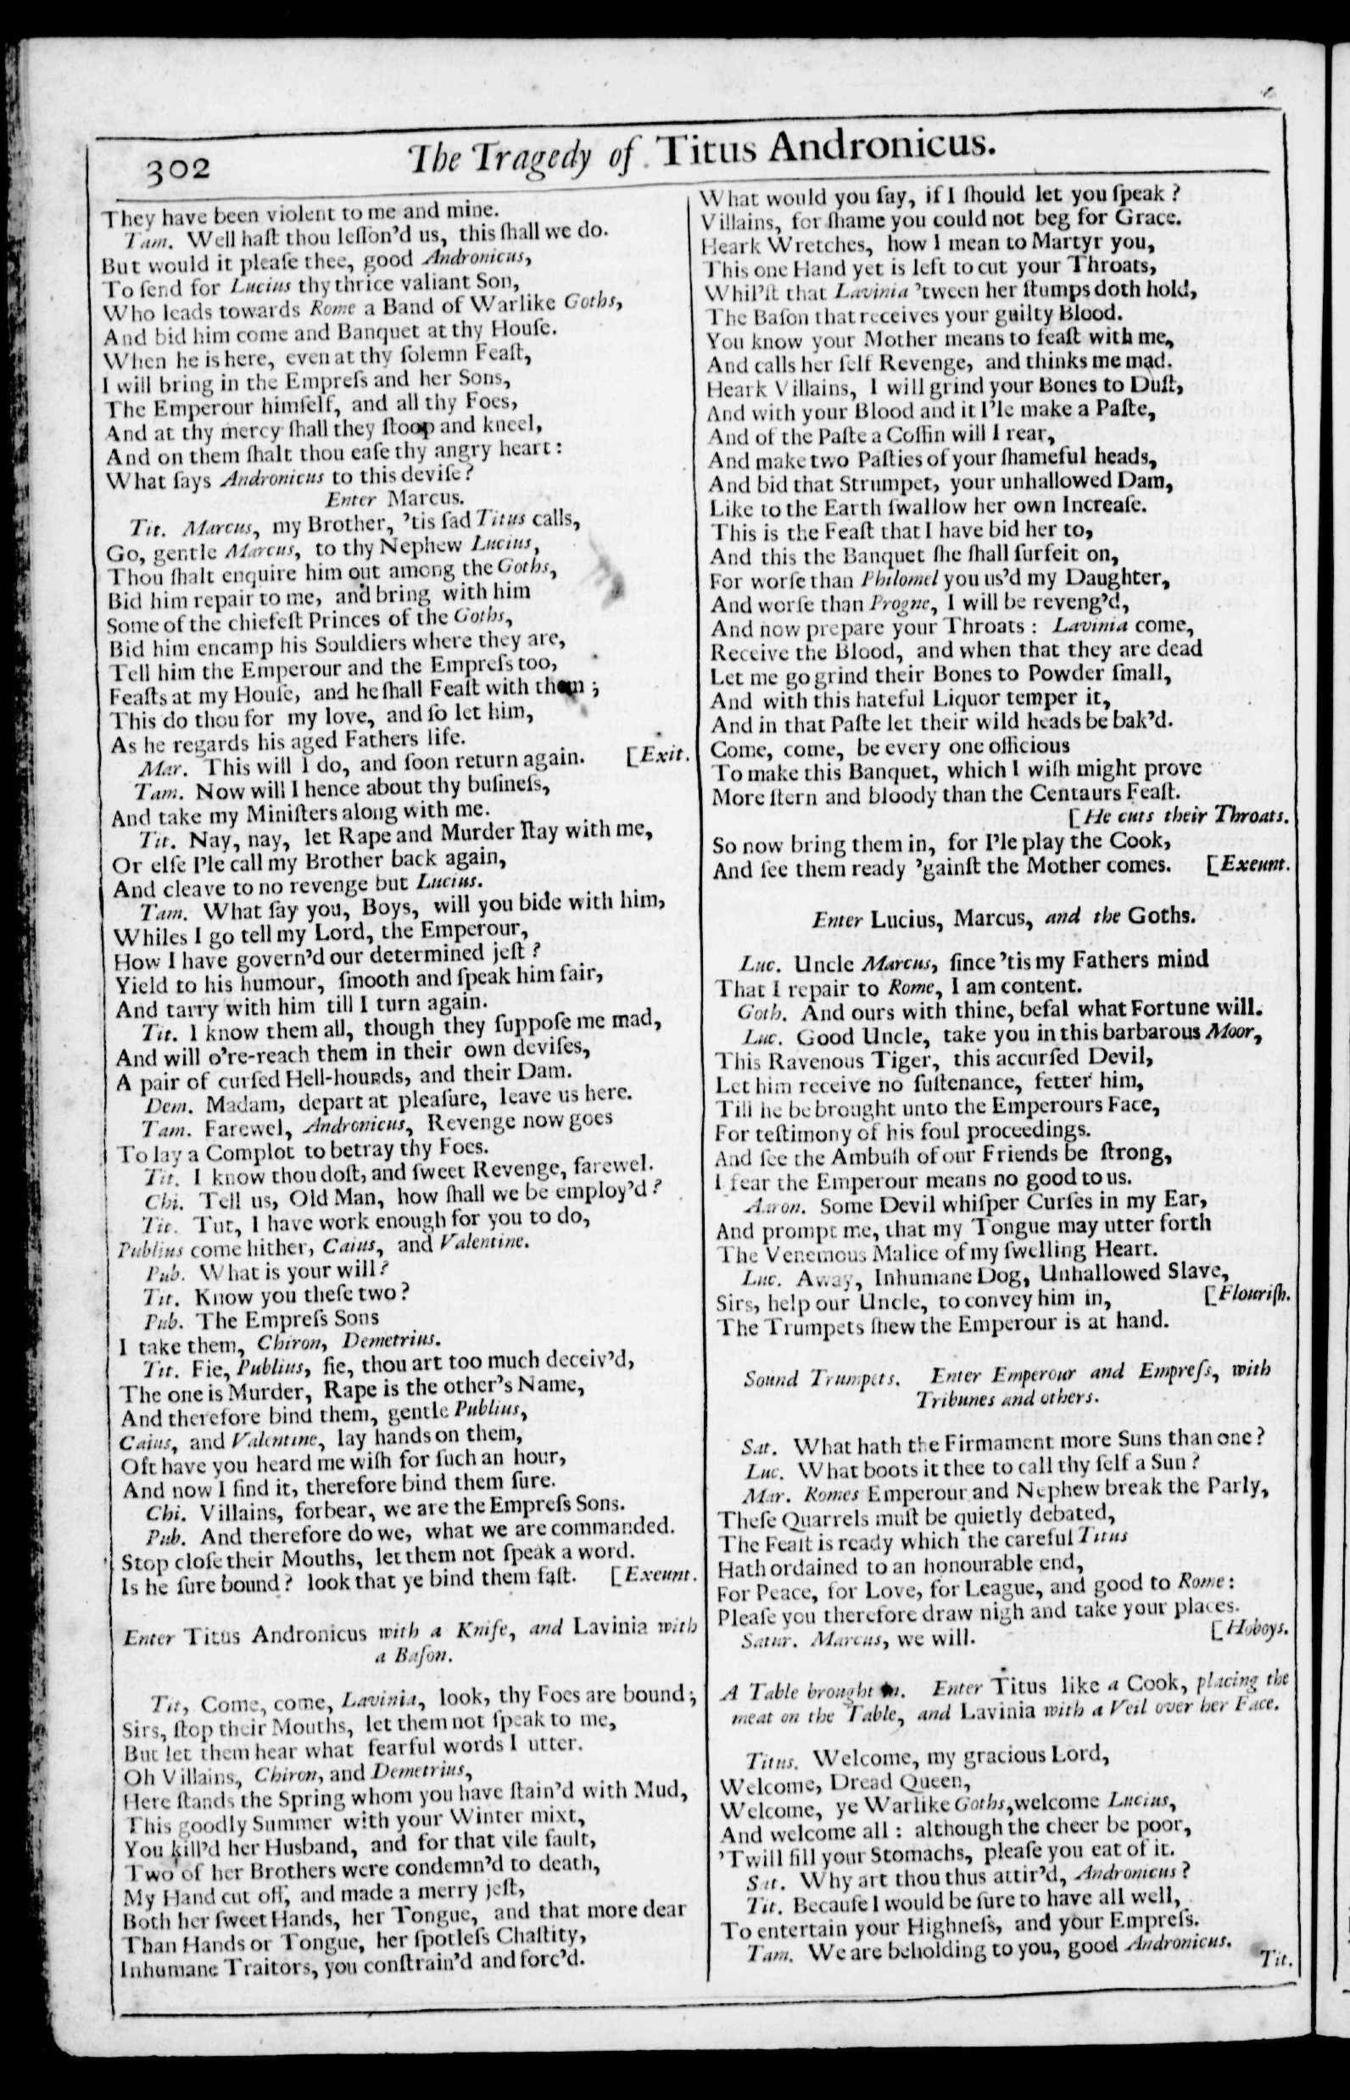 302
The Tragedy of Titus Andronicus.
They have been violent to me and mine.
Tam. Well haſt thou leſſon'd us, this ſhall we do.
But would it pleaſe thee, good Andronicus,
To ſend for Lucius thy thrice valiant Son,
Who leads towards Rome a Band of Warlike Goths,
And bid him come and Banquet at thy Houſe.
When he is here, even at thy ſolemn Feaſt,
I will bring in the Empreſs and her Sons,
The Emperour himſelf, and all thy Foes,
And at thy mercy ſhall they ſtoop and kneel,
And on them ſhalt thou eaſe thy angry heart:
What ſays Andronicus to this deviſe?
Enter Marcus.
Tit. Marcus, my Brother, 'tis ſad Titus calls,
Go, gentle Marcus, to thy Nephew Lucius,
Thou ſhalt enquire him out among the Goths,
Bid him repair to me, and bring with him
Some of the chiefeſt Princes of the Goths,
Bid him encamp his Souldiers where they are,
Tell him the Emperour and the Empreſs too,
Feaſts at my Houſe, and he ſhall Feaſt with them;
This do thou for my love, and ſo let him,
As he regards his aged Fathers life.
Mar. This will I do, and ſoon return again. [Exit.
Tam. Now will I hence about thy buſineſs,
And take my Miniſters along with me.
Tit. Nay, nay, let Rape and Murder ſtay with me,
Or elſe I'le call my Brother back again,
And cleave to no revenge but Lucius.
Tam. What ſay you, Boys, will you bide with him,
Whiles I go tell my Lord, the Emperour,
How I have govern'd our determined jeſt?
Yield to his humour, ſmooth and ſpeak him fair,
And tarry with him till I turn again.
Tit. I know them all, though they ſuppoſe me mad,
And will o're-reach them in their own deviſes,
A pair of curſed Hell-hounds, and their Dam.
Dem. Madam, depart at pleaſure, leave us here.
Tam. Farewel, Andronicus, Revenge now goes
To lay a Complot to betray thy Foes.
Tit. I know thou doſt, and ſweet Revenge, farewel.
Chi. Tell us, Old Man, how ſhall we be employ'd?
Tit. Tut, I have work enough for you to do,
Publius come hither, Caius, and Valentine.
Pub. What is your will?
Tit. Know you theſe two?
Pub. The Empreſs Sons
I take them, Chiron, Demetrius.
Tit. Fie, Publius, fie, thou art too much deceiv'd,
The one is Murder, Rape is the other's Name,
And therefore bind them, gentle Publius,
Caius, and Valentine, lay hands on them,
Oft have you heard me wiſh for ſuch an hour,
And now I find it, therefore bind them ſure.
Chi. Villains, forbear, we are the Empreſs Sons.
Pub. And therefore do we, what we are commanded.
Stop cloſe their Mouths, let them not ſpeak a word.
Is he ſure bound? look that ye bind them faſt. [Exeunt.
Enter Titus Andronicus with a Knife, and Lavinia with
a Baſon.
Tit, Come, come, Lavinia, look, thy Foes are bound;
Sirs, ſtop their Mouths, let them not ſpeak to me,
But let them hear what fearful words I utter.
Oh Villains, Chiron, and Demetrius,
Here ſtands the Spring whom you have ſtain'd with Mud,
This goodly Summer with your Winter mixt,
You kill'd her Husband, and for that vile fault,
Two of her Brothers were condemn'd to death,
My Hand cut off, and made a merry jeſt,
Both her ſweet Hands, her Tongue, and that more dear
Than Hands or Tongue, her ſpotleſs Chaſtity,
Inhumane Traitors, you conſtrain'd and forc'd.
What would you ſay, if I ſhould let you ſpeak?
Villains, for ſhame you could not beg for Grace.
Heark Wretches, how I mean to Martyr you,
This one Hand yet is left to cut your Throats,
Whil'ſt that Lavinia 'tween her ſtumps doth hold,
The Baſon that receives your guilty Blood.
You know your Mother means to feaſt with me,
And calls her ſelf Revenge, and thinks me mad.
Heark Villains, I will grind your Bones to Duſt,
And with your Blood and it I'le make a Paſte,
And of the Paſte a Coffin will I rear,
And make two Paſties of your ſhameful heads,
And bid that Strumpet, your unhallowed Dam,
Like to the Earth ſwallow her own Increaſe.
This is the Feaſt that I have bid her to,
And this the Banquet ſhe ſhall ſurfeit on,
For worſe than Philomel you us'd my Daughter,
And worſe than Progne, I will be reveng'd,
And now prepare your Throats: Lavinia come,
Receive the Blood, and when that they are dead
Let me go grind their Bones to Powder ſmall,
And with this hateful Liquor temper it,
And in that Paſte let their wild heads be bak'd.
Come, come, be every one officious
To make this Banquet, which I wiſh might prove
More ſtern and bloody than the Centaurs Feaſt.
[He cuts their Throats.
So now bring them in, for I'le play the Cook,
And ſee them ready 'gainſt the Mother comes. [Exeunt.
Enter Lucius, Marcus, and the Goths.
Luc. Uncle Marcus, ſince 'tis my Fathers mind
That I repair to Rome, I am content.
Goth. And ours with thine, befal what Fortune will.
Luc. Good Uncle, take you in this barbarous Moor,
This Ravenous Tiger, this accurſed Devil,
Let him receive no ſuſtenance, fetter him,
Till he be brought unto the Emperours Face,
For teſtimony of his foul proceedings.
And ſee the Ambuſh of our Friends be ſtrong,
I fear the Emperour means no good to us.
Aaron. Some Devil whiſper Curſes in my Ear,
And prompt me, that my Tongue may utter forth
The Venemous Malice of my ſwelling Heart.
Luc. Away, Inhumane Dog, Unhallowed Slave,
Sirs, help our Uncle, to convey him in, [Flouriſh.
The Trumpets ſhew the Emperour is at hand.
Sound Trumpets. Enter Emperour and Empreſs, with
Tribunes and others.
Sat. What hath the Firmament more Suns than one?
Luc. What boots it thee to call thy ſelf a Sun?
Mar. Romes Emperour and Nephew break the Parly,
Theſe Quarrels muſt be quietly debated,
The Feaſt is ready which the careful Titus
Hath ordained to an honourable end,
For Peace, for Love, for League, and good to Rome:
Pleaſe you therefore draw nigh and take your places.
Satur. Marcus, we will. [Hoboys.
A Table brought in. Enter Titus like a Cook, placing the
meat on the Table, and Lavinia with a Veil over her Face.
Titus. Welcome, my gracious Lord,
Welcome, Dread Queen,
Welcome, ye Warlike Goths, welcome Lucius,
And welcome all: although the cheer be poor,
'Twill fill your Stomachs, pleaſe you eat of it.
Sat. Why art thou thus attir'd, Andronicus?
Tit. Becauſe I would be ſure to have all well,
To entertain your Highneſs, and your Empreſs.
Tam. We are beholding to you, good Andronicus.
Tit.